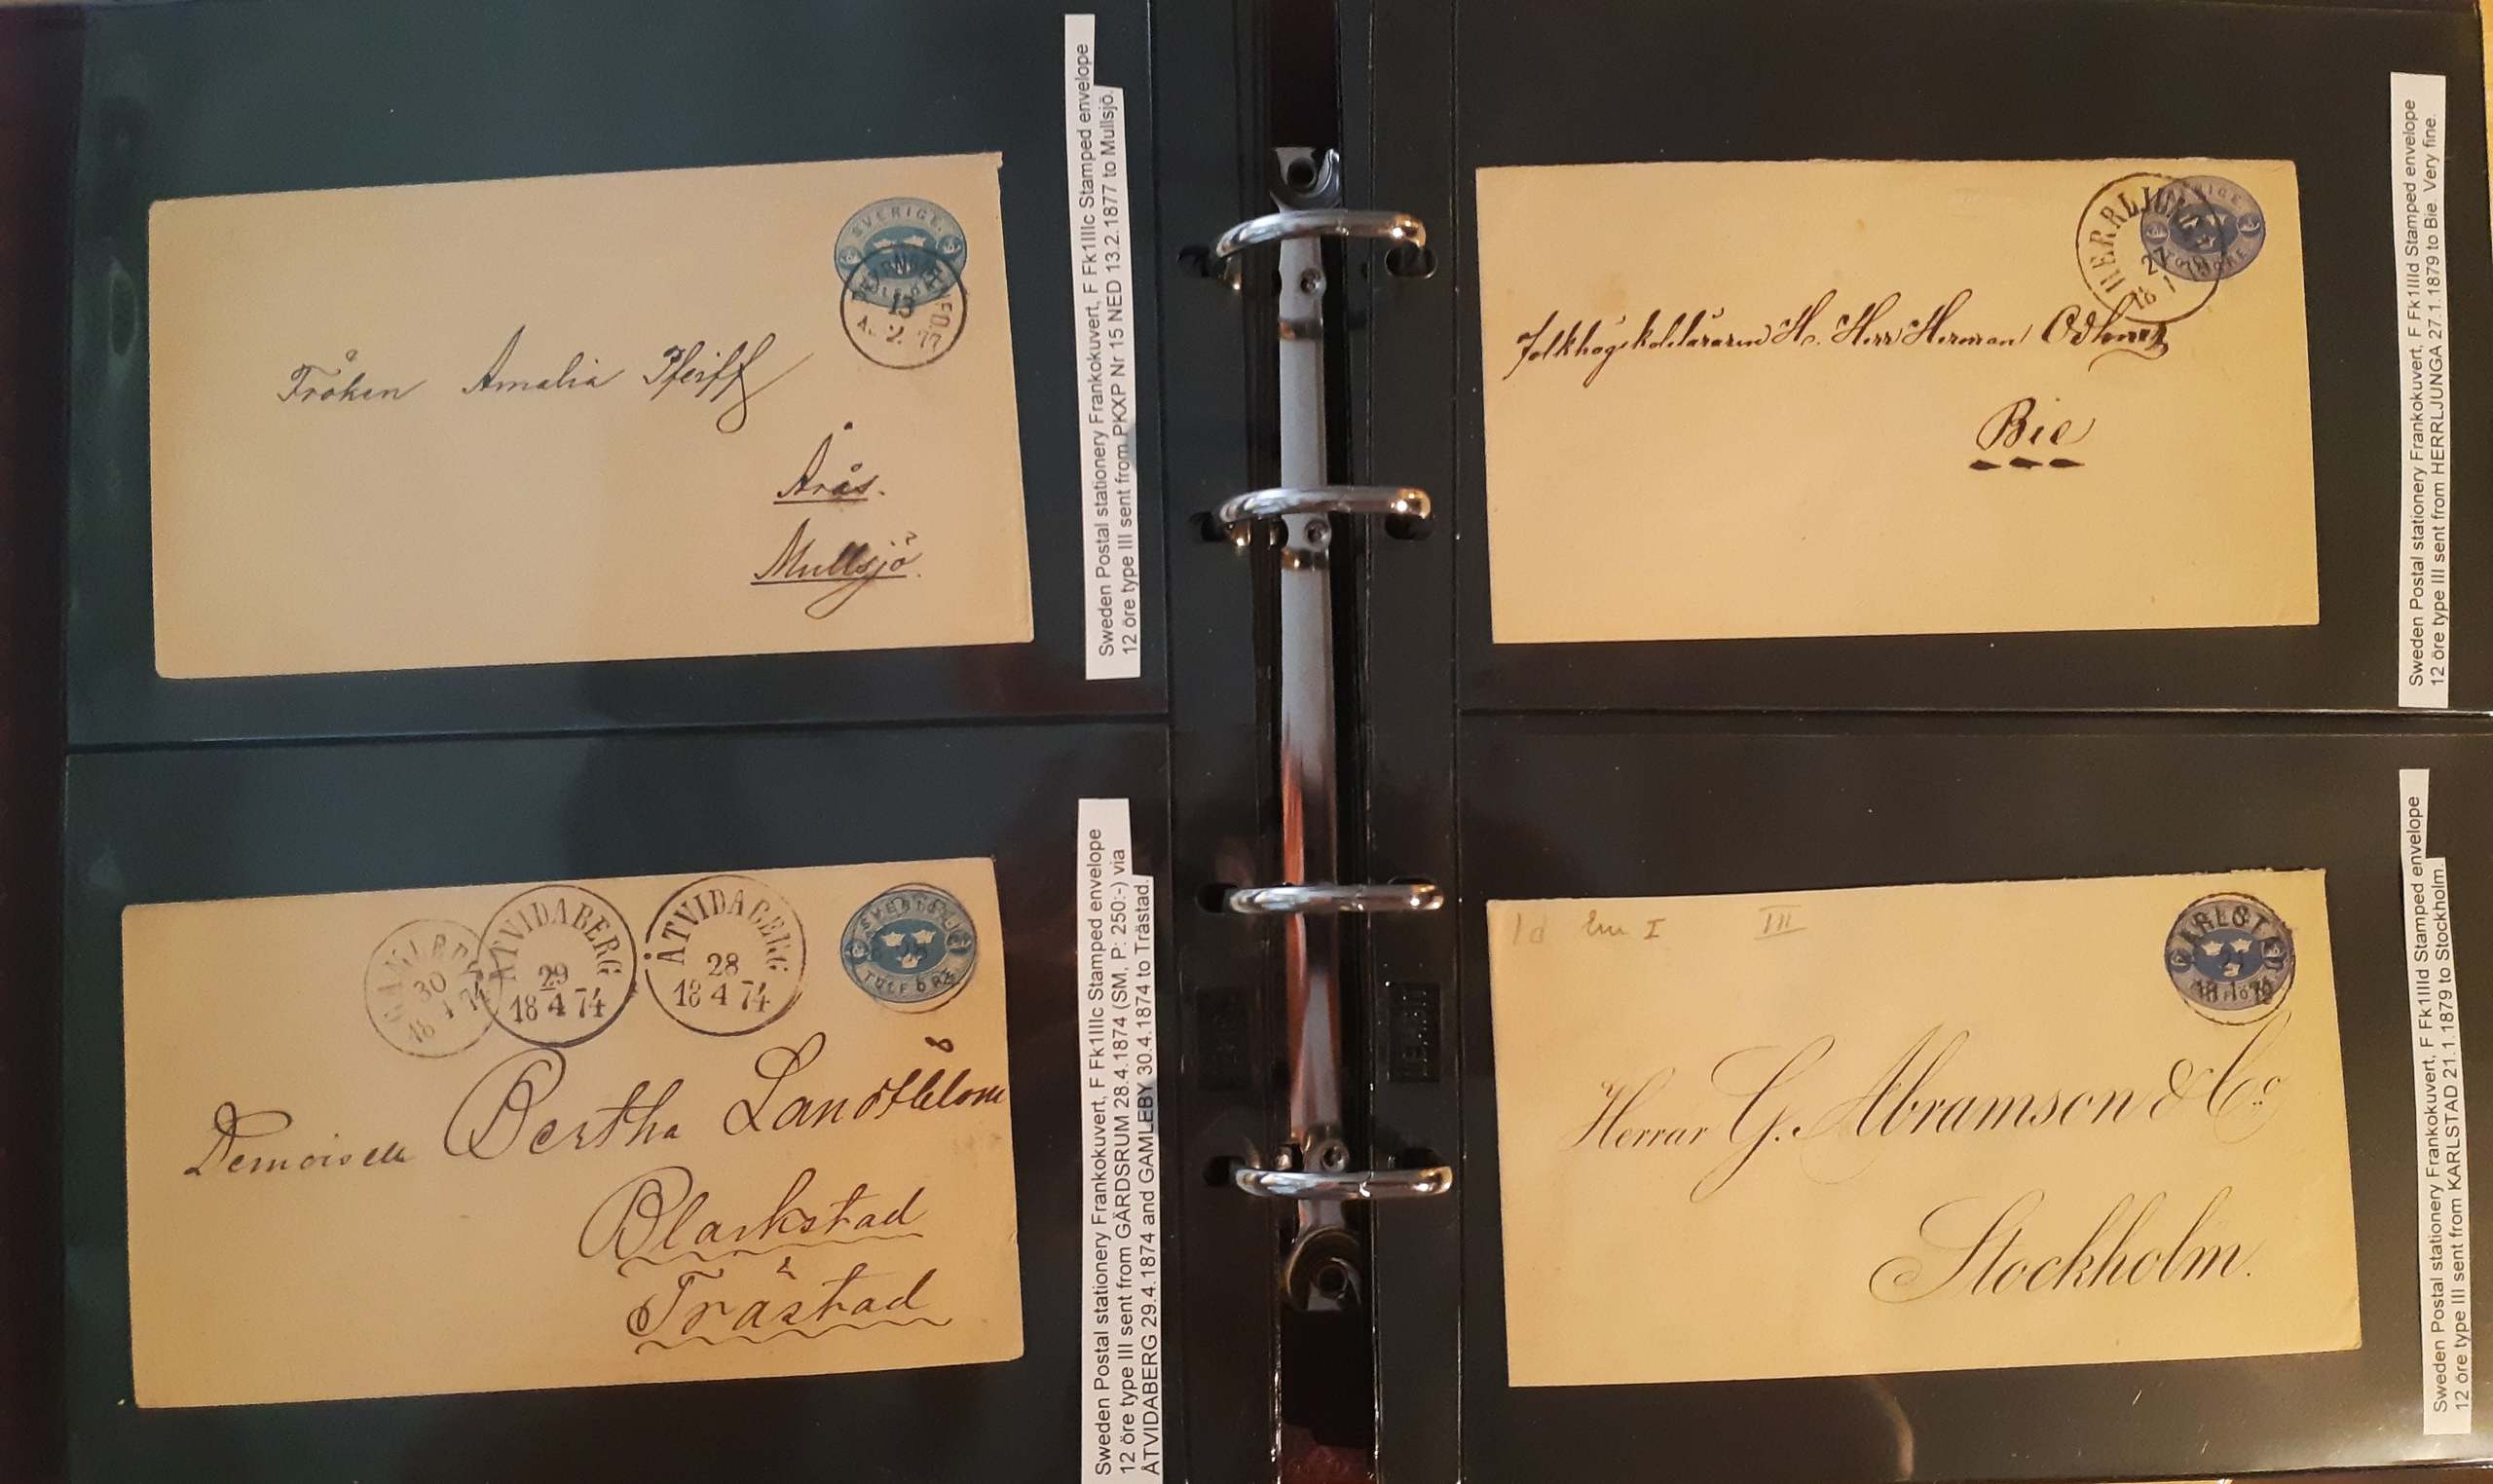 SVERIGE.
TOLF ÖRE
13
2. 77
Fröken Amalia Pfeiff
Årås.
Mullsjö.
Sweden Postal stationery Frankokuvert, F Fk1IIIc Stamped envelope
12 öre type III sent from PKXP Nr 15 NED 13.2.1877 to Mullsjö.
HERRLJUN
27
18 1
Folkhögskoleläraren H. Herr Herman Odhner
Bie
Sweden Postal stationery Frankokuvert, F Fk1IIId Stamped envelope
12 öre type III sent from HERRLJUNGA 27.1.1879 to Bie. Very fine.
30
18 4 74
ÅTVIDABERG
29
18 4 74
ÅTVIDABERG
28
18 4 74
TOLF ÖRE
Demoiselle Bertha Landtblom
Blackstad
&
Trästad
Sweden Postal stationery Frankokuvert, F Fk1IIIc Stamped envelope
12 öre type III sent from GÄRDSRUM 28.4.1874 (SM, P: 250:-) via
ÅTVIDABERG 29.4.1874 and GAMLEBY 30.4.1874 to Trästad.
1d Em I III
KARLSTAD
Herrar G. Abramson & Co
Stockholm.
Sweden Postal stationery Frankokuvert, F Fk1IIId Stamped envelope
12 öre type III sent from KARLSTAD 21.1.1879 to Stockholm.